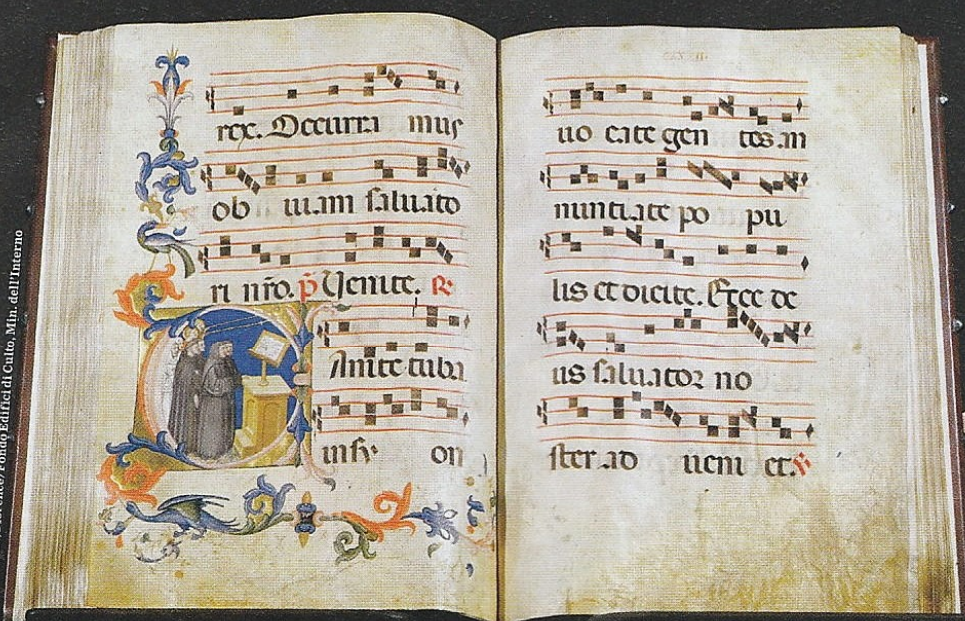 rex. Occurra mus
ob uiam saluato
ri nr̄o. p̄ Uenite. R.
CAnite tuba
in sy on
uo cate gen tes. an
nuntiate po pu
lis et dicite. Ecce de
us saluator no
ster ad ueni et. V.
Fondo Edifici di Culto, Min. dell'Interno